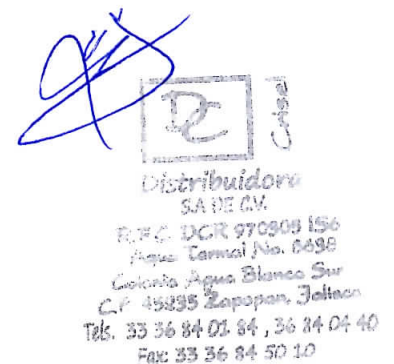 DC
Crisel
Distribuidora
S.A DE C.V.
R.F.C. DCR 970303
Agua Termal No.
Colonia Agua Blanca Sur
C.P. Zapopan, Jalisco
Tels. 33 36 84 01 84 , 36 84 04 40
Fax: 33 36 84 50 10